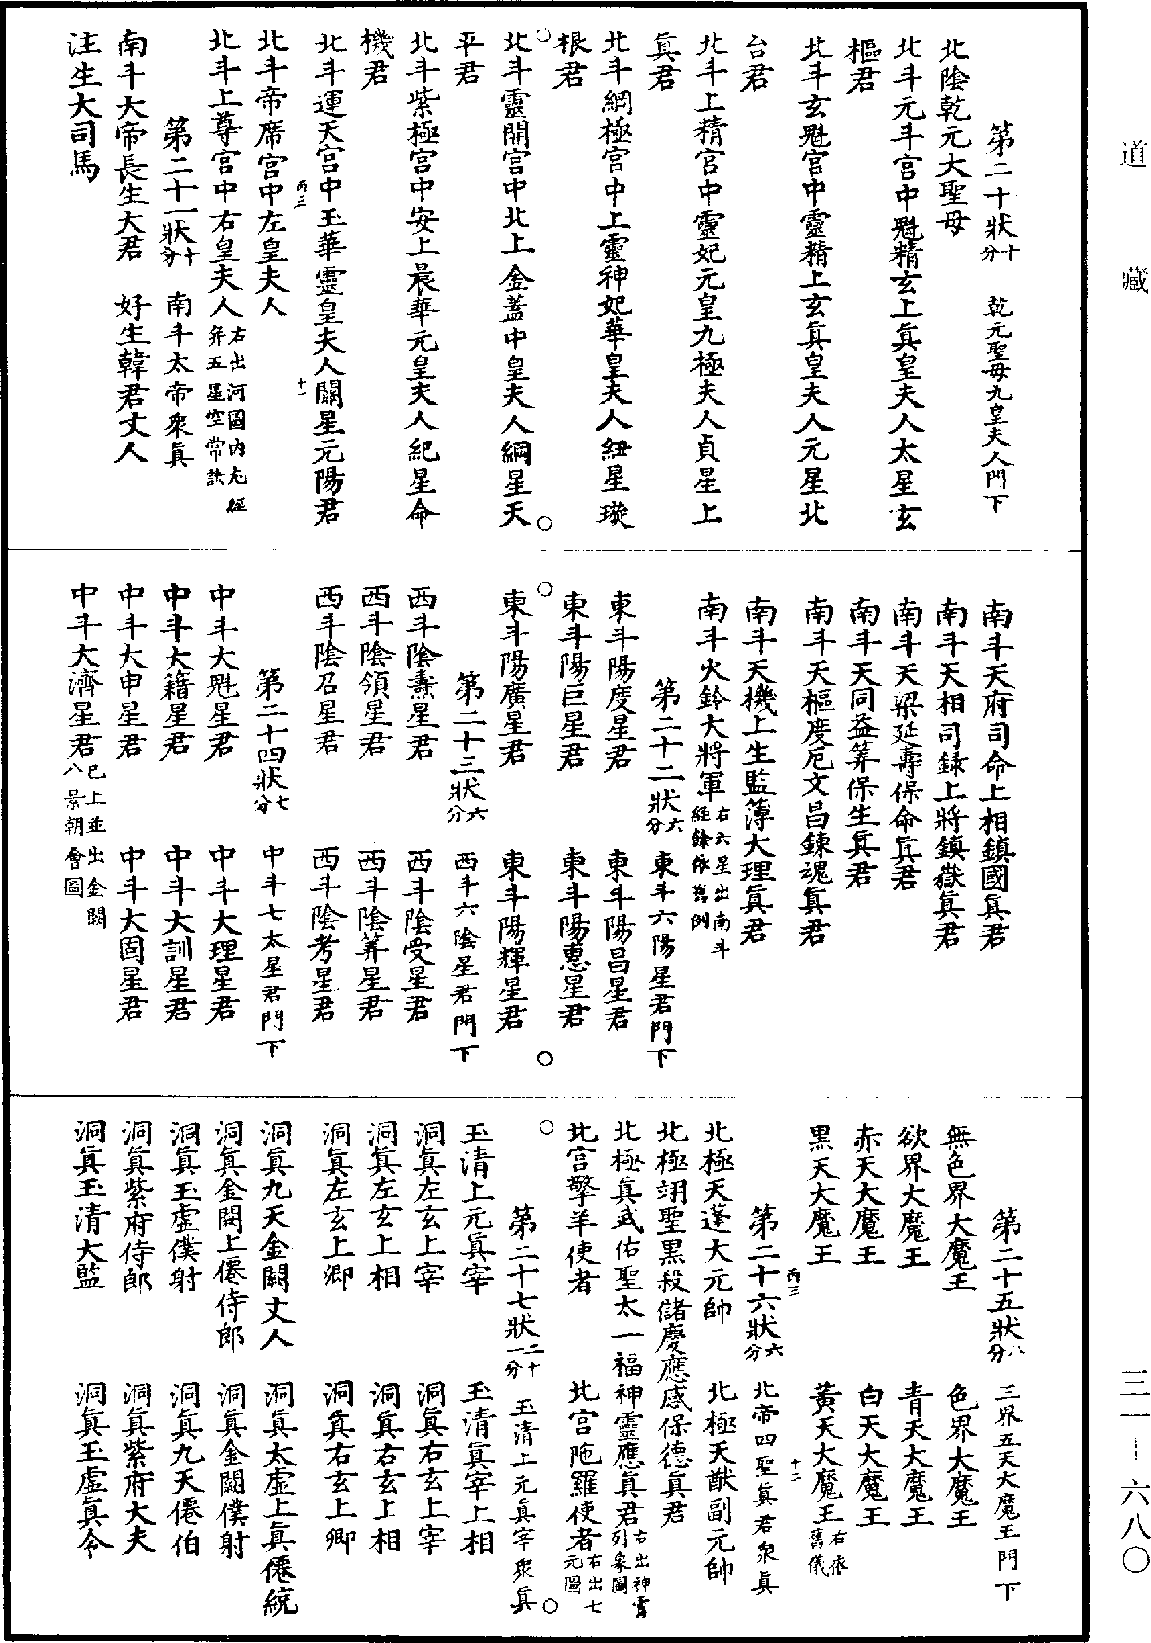 道藏
第二十狀十分　乾元聖母九皇夫人門下
北陰乾元大聖母
北斗元斗宮中魁精玄上眞皇夫人太星玄
樞君
北斗玄魁宮中靈精上玄眞皇夫人元星北
台君
北斗上精宮中靈妃元皇九極夫人貞星上
眞君
北斗綱極宮中上靈神妃華皇夫人紐星璇
根君
北斗靈關宮中北上金蓋中皇夫人綱星天
平君
北斗紫極宮中安上晨華元皇夫人紀星命
機君
北斗運天宮中玉華靈皇夫人關星元陽君
丙三　十一
北斗帝席宮中左皇夫人
北斗上尊宮中右皇夫人右出河圖內玄經并五星空常訣
第二十一狀十分　南斗太帝衆眞
南斗大帝長生大君　好生韓君丈人
注生大司馬
南斗天府司命上相鎮國眞君
南斗天相司錄上將鎮嶽眞君
南斗天梁延壽保命眞君
南斗天同益筭保生眞君
南斗天樞度厄文昌鍊魂眞君
南斗天機上生監簿大理眞君
南斗火鈴大將軍右六星出南斗經餘依舊例
第二十二狀六分　東斗六陽星君門下
東斗陽度星君　東斗陽昌星君
東斗陽巨星君　東斗陽惠星君
東斗陽廣星君　東斗陽輝星君
第二十三狀六分　西斗六陰星君門下
西斗陰燾星君　西斗陰受星君
西斗陰領星君　西斗陰筭星君
西斗陰召星君　西斗陰考星君
第二十四狀七分　中斗七太星君門下
中斗大魁星君　中斗大理星君
中斗大籍星君　中斗大訓星君
中斗大申星君　中斗大固星君
中斗大濟星君已上並出金闕八景朝會圖
第二十五狀八分　三界五天大魔王門下
無色界大魔王　色界大魔王
欲界大魔王　青天大魔王
赤天大魔王　白天大魔王
黑天大魔王　黃天大魔王右依舊儀
丙三　十二
第二十六狀六分　北帝四聖眞君衆眞
北極天蓬大元帥　北極天猷副元帥
北極翊聖黑殺儲慶應感保德眞君
北極眞武佑聖太一福神靈應眞君右出神霄列象圖
北宮擎羊使者　北宮陁羅使者右出七元圖
第二十七狀二十一分　玉清上元眞宰衆眞
玉清上元眞宰　玉清眞宰上相
洞眞左玄上宰　洞眞右玄上宰
洞眞左玄上相　洞眞右玄上相
洞眞左玄上卿　洞眞右玄上卿
洞眞九天金闕丈人　洞眞太虛上眞僊統
洞眞金闕上僊侍郎　洞眞金闕僕射
洞眞玉虛僕射　洞眞九天僊伯
洞眞紫府侍郎　洞眞紫府大夫
洞眞玉清大監　洞眞玉虛眞令
三一—六八〇